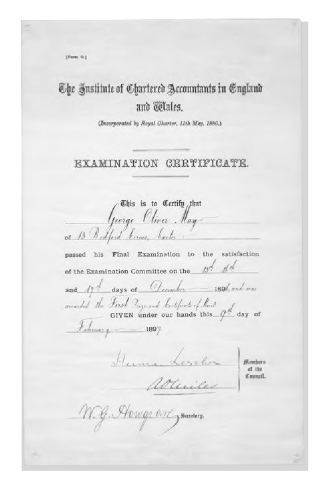 [Form G.]
The Institute of Chartered Accountants in England
and Wales.
(Incorporated by Royal Charter, 11th May, 1880.)
EXAMINATION CERTIFICATE.
This is to Certify that
George Oliver May
of 13 Bedford Circus, Exeter
passed his Final Examination to the satisfaction
of the Examination Committee on the 15th 16th
and 17th days of December 1896, and was
awarded the First Prize and Certificate of Merit
GIVEN under our hands this 9th day of
February 1897
Members
of the
Council.
W. G. Howgrave, Secretary.